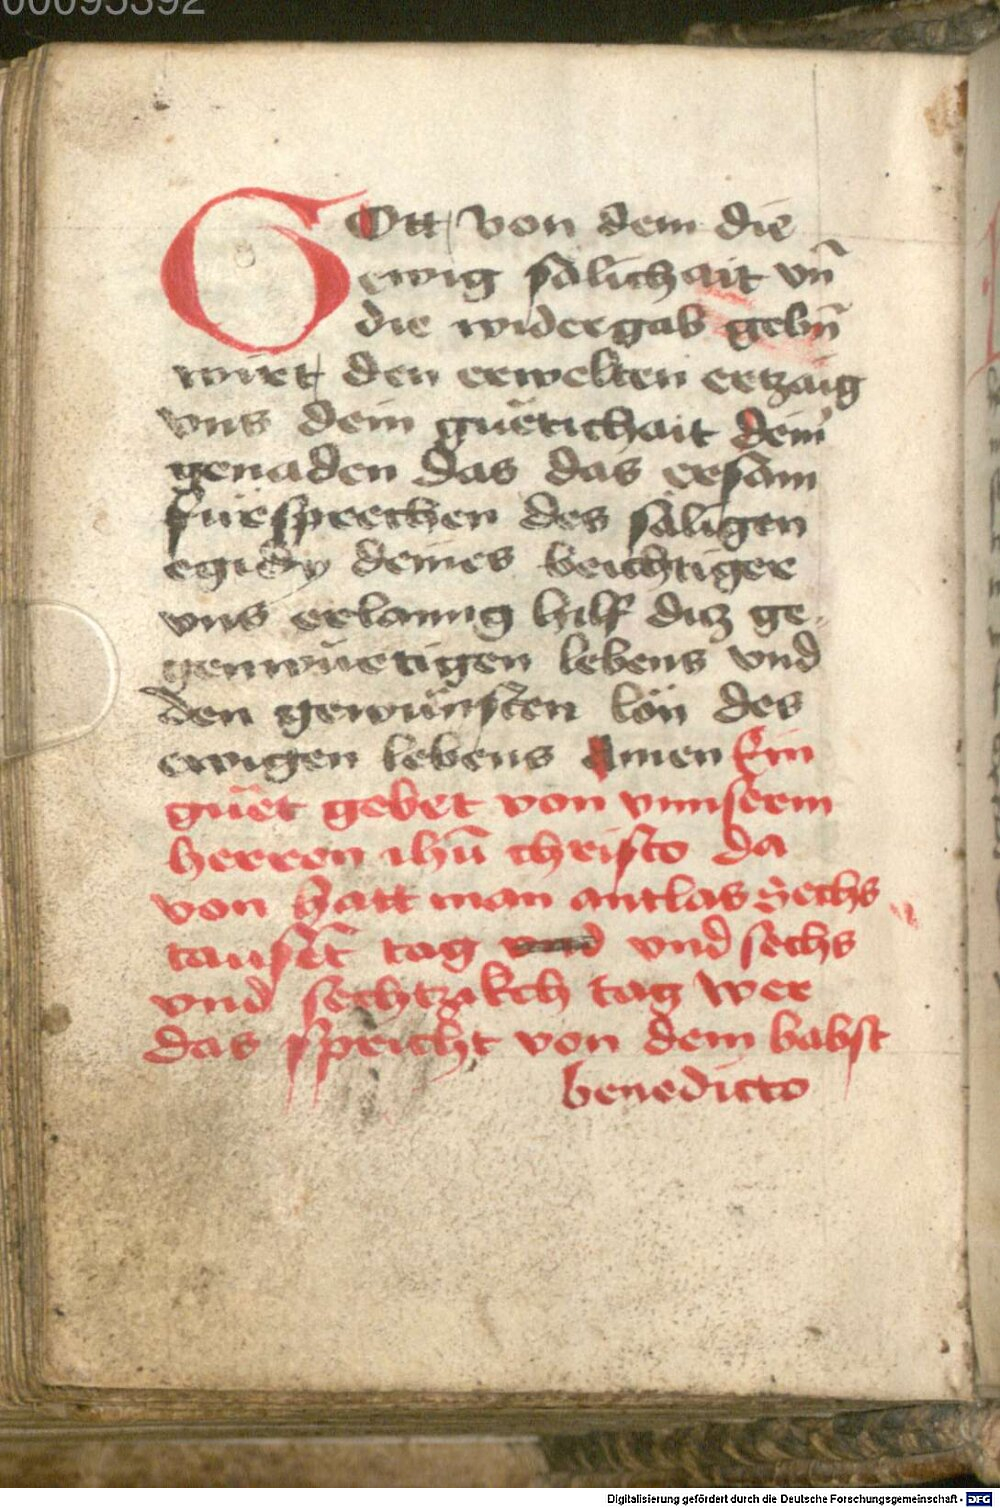 00095392
GOtt von dem die
ewig sälichait vn̄
die widergab gebn̄
wirt den erwelten ertzaig
vns dein güetichait dein̾
genaden das das ersam
fürsprechen des säligen
egidy deines beichtiger
vns erlanng hilf ditz ge-
genwüertigen lebens vnd
den gewünsten lön des
ewigen lebens Amen Ein
güet gebet von vnnserm
herren ihū christo da
von hatt man antlas Sechs
tausēt tag vnd vnd sechs
vnd sechtzikch tag wer
das spricht von dem babst
benedicto
Digitalisierung gefördert durch die Deutsche Forschungsgemeinschaft - DFG